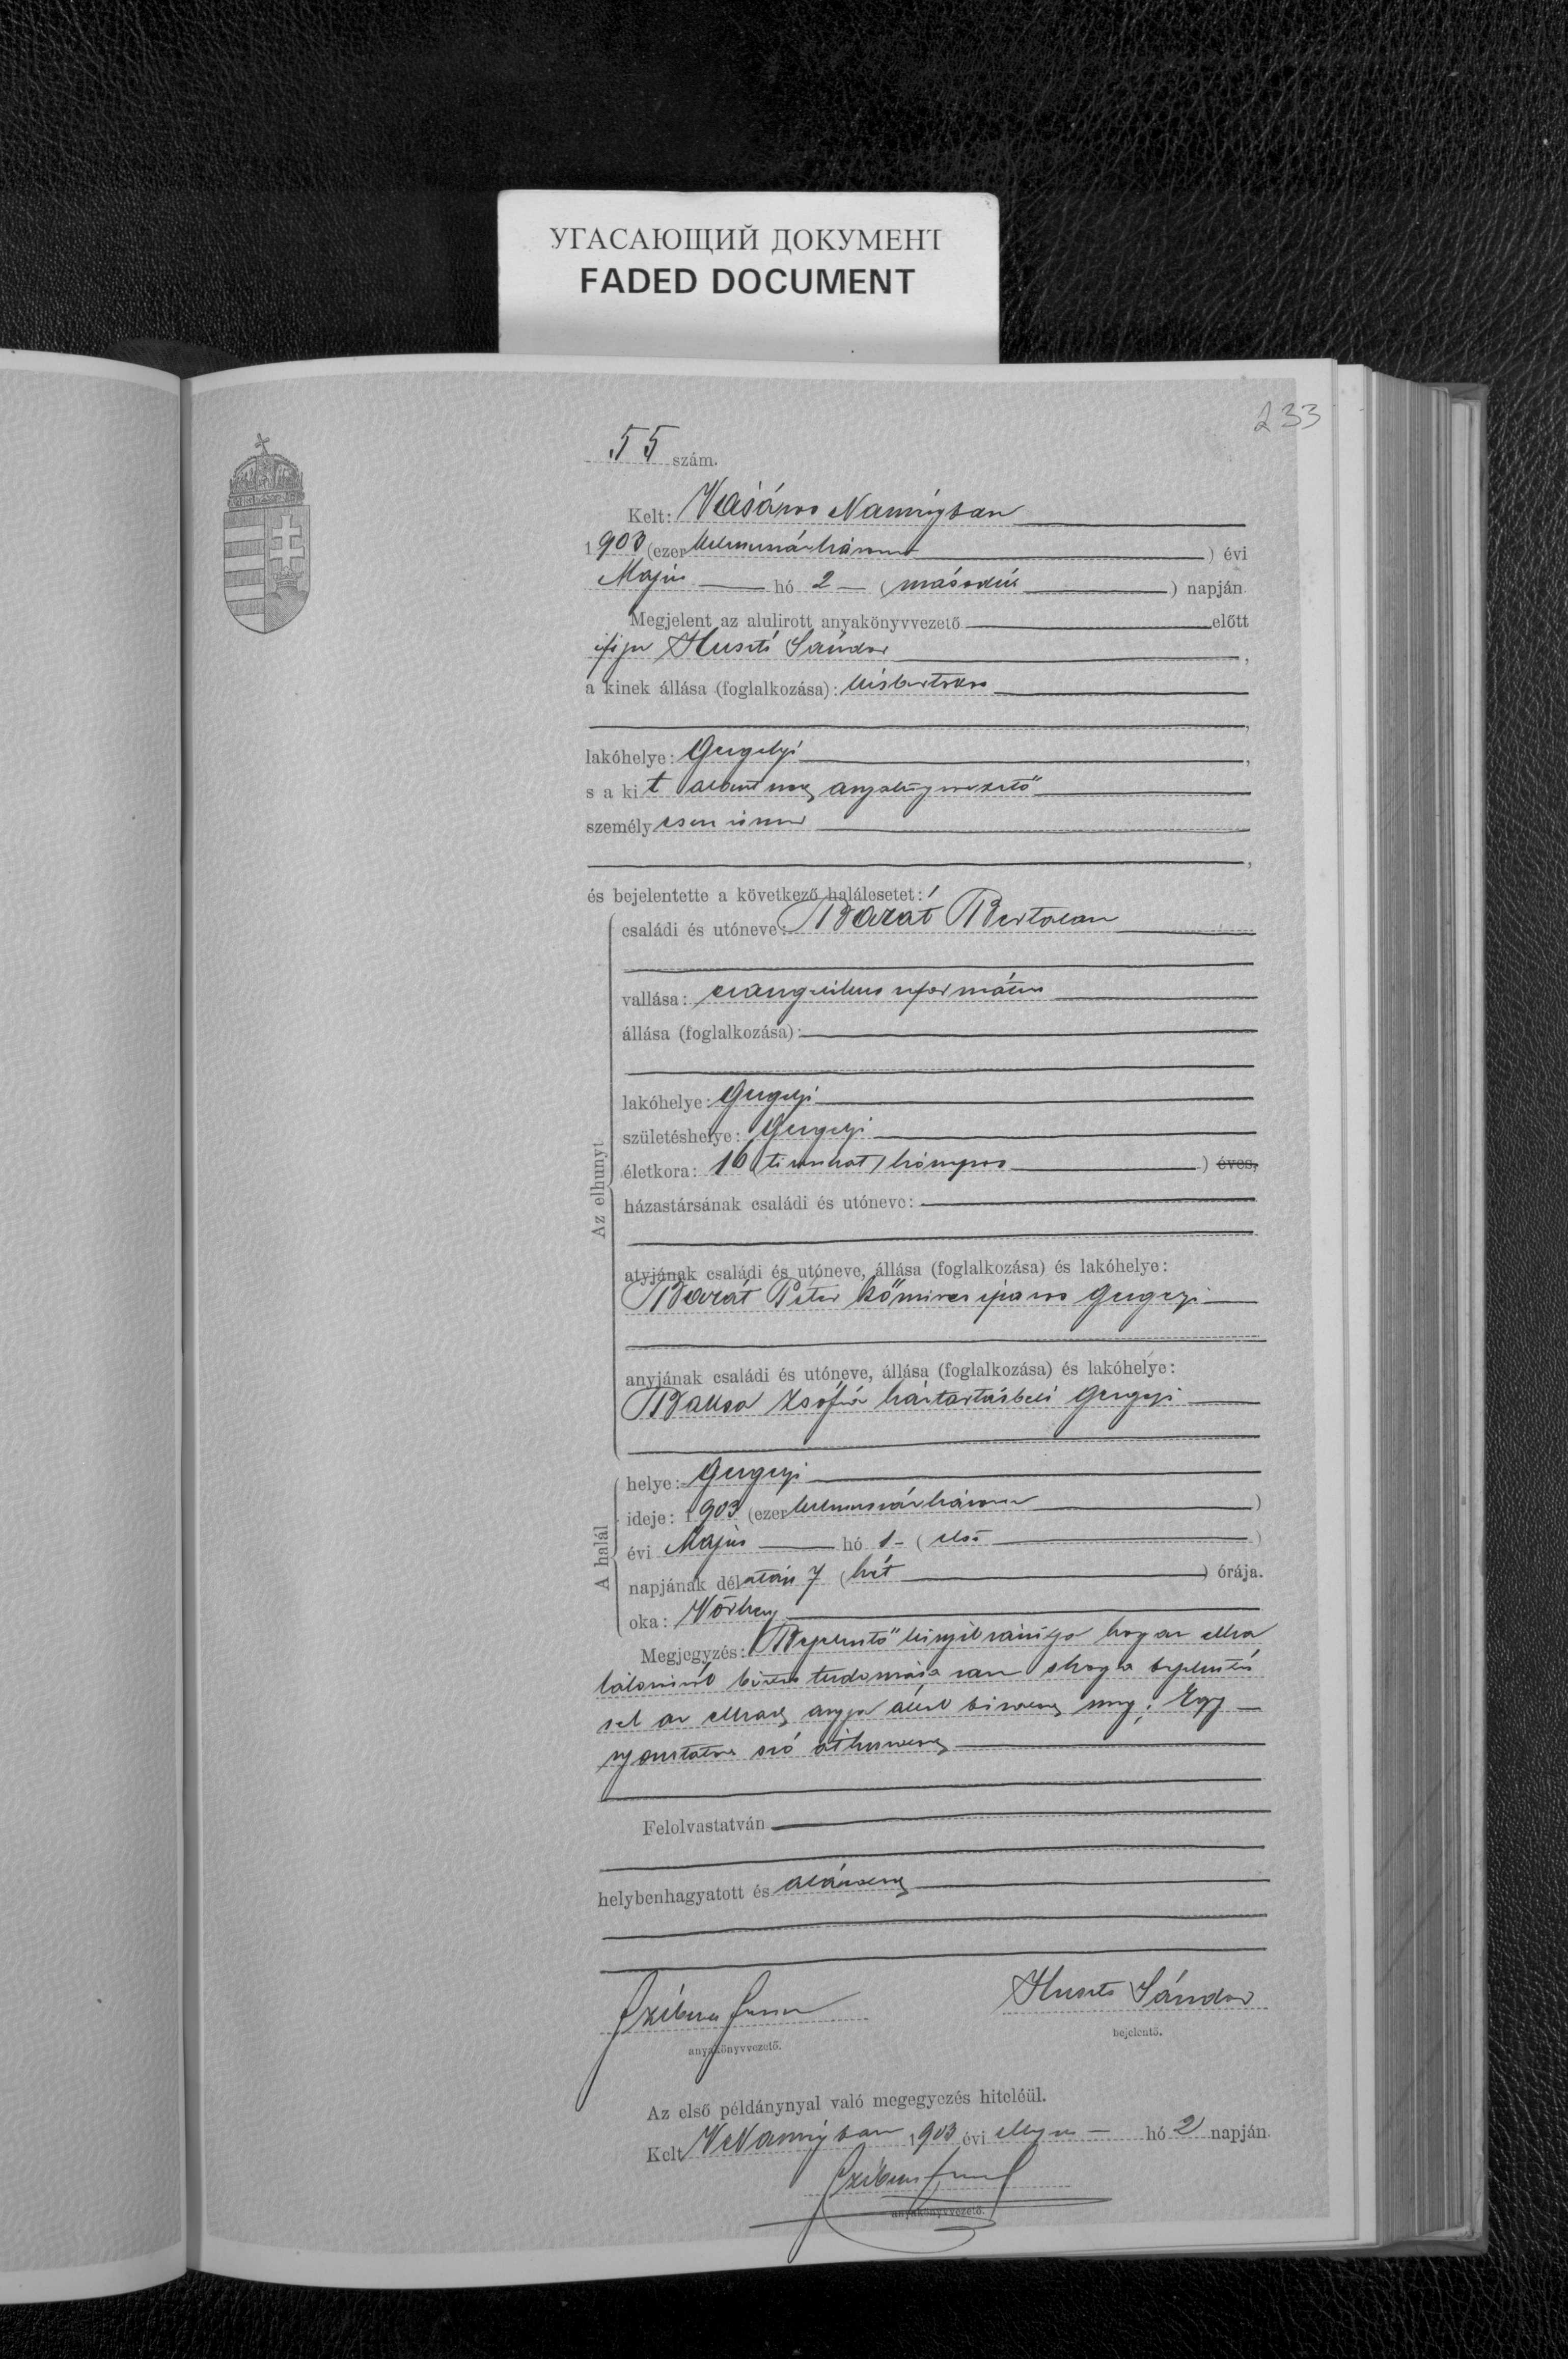 УГАСАЮЩИЙ ДОКУМЕНТ
FADED DOCUMENT
233
55 szám.
Kelt: Vásáros Naményban
1903 (ezerkilenczszázhárom) évi
Május hó 2 (második) napján
Megjelent az alulirott anyakönyvvezető előtt
ifju Husztí Sándor,
a kinek állása (foglalkozása): kisbirtokos
lakóhelye: Gergelyi,
s a kit alulírott anyakönyvvezető
személyesen ismer,
és bejelentette a következő halálesetet:
Az elhunyt
családi és utóneve: Barát Bertalan
vallása: evangelikus református
állása (foglalkozása):
lakóhelye: Gergelyi
születéshelye: Gergelyi
életkora: 16 (tizenhat) hónapos) éves,
házastársának családi és utóneve:
atyjának családi és utóneve, állása (foglalkozása) és lakóhelye:
Barát Péter kőmives iparos Gergelyi
anyjának családi és utóneve, állása (foglalkozása) és lakóhelye:
Baksa Zsófia háztartásbeli Gergelyi
A halál
helye: Gergelyi
ideje: 1903 (ezerkilenczszázhárom)
évi Május hó 1 (első)
napjának délután 7 (hét) órája.
oka: Vörheny
Megjegyzés: Bejelentő kinyilvánítja hogy az elha
lálozásról biztos tudomása van s hogy a bejelentés
sel az elhunyt anyja által bizatott meg; Egy
nyomtatott szó áthuzatott
Felolvastatván
helybenhagyatott és aláíratott
Huszti Sándor
anyakönyvvezető.
bejelentő.
Az első példánynyal való megegyezés hiteléül.
Kelt VNaményban 1903 évi Május hó 2 napján
anyakönyvvezető.